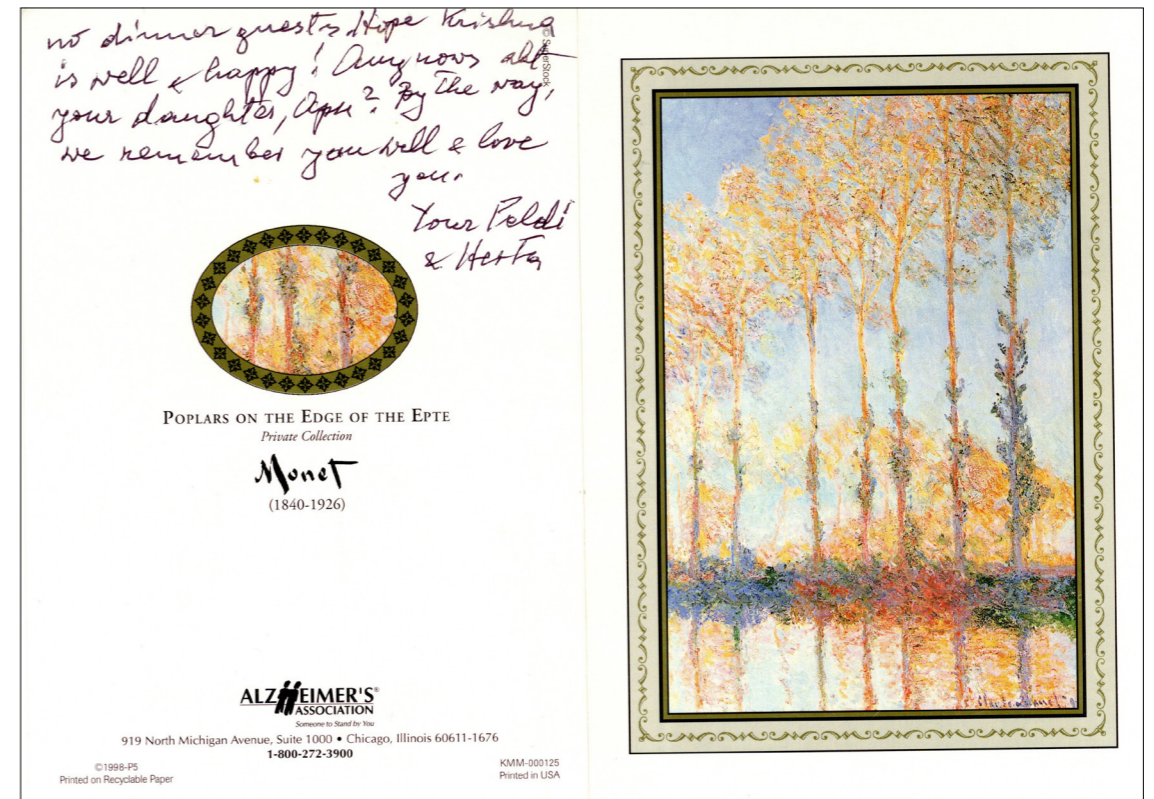 no dinner guests. Hope Krishna
is well & happy! Any nows abt
your daughter, Apu? By the way,
we remember you well & love
you.
Your Poldi
& Herta
© SuperStock
POPLARS ON THE EDGE OF THE EPTE
Private Collection
Monet
(1840-1926)
ALZHEIMER'S®
ASSOCIATION
Someone to Stand by You
919 North Michigan Avenue, Suite 1000 • Chicago, Illinois 60611-1676
1-800-272-3900
©1998-P5
Printed on Recyclable Paper
KMM-000125
Printed in USA
Claude Monet